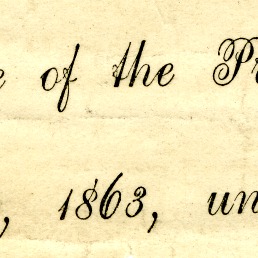 e of the Pr
, 1863, un